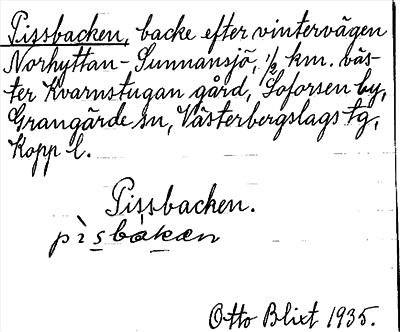 Pissbacken, backe efter vintervägen
Norhyttan-Sunnansjö, ½ km. väs-
ter Kvarnstugan gård, Loforsen by,
Grangärde sn, Västerbergslags tg,
Kopp l.
Pissbacken.
pìsbakæn
Otto Blixt 1935.